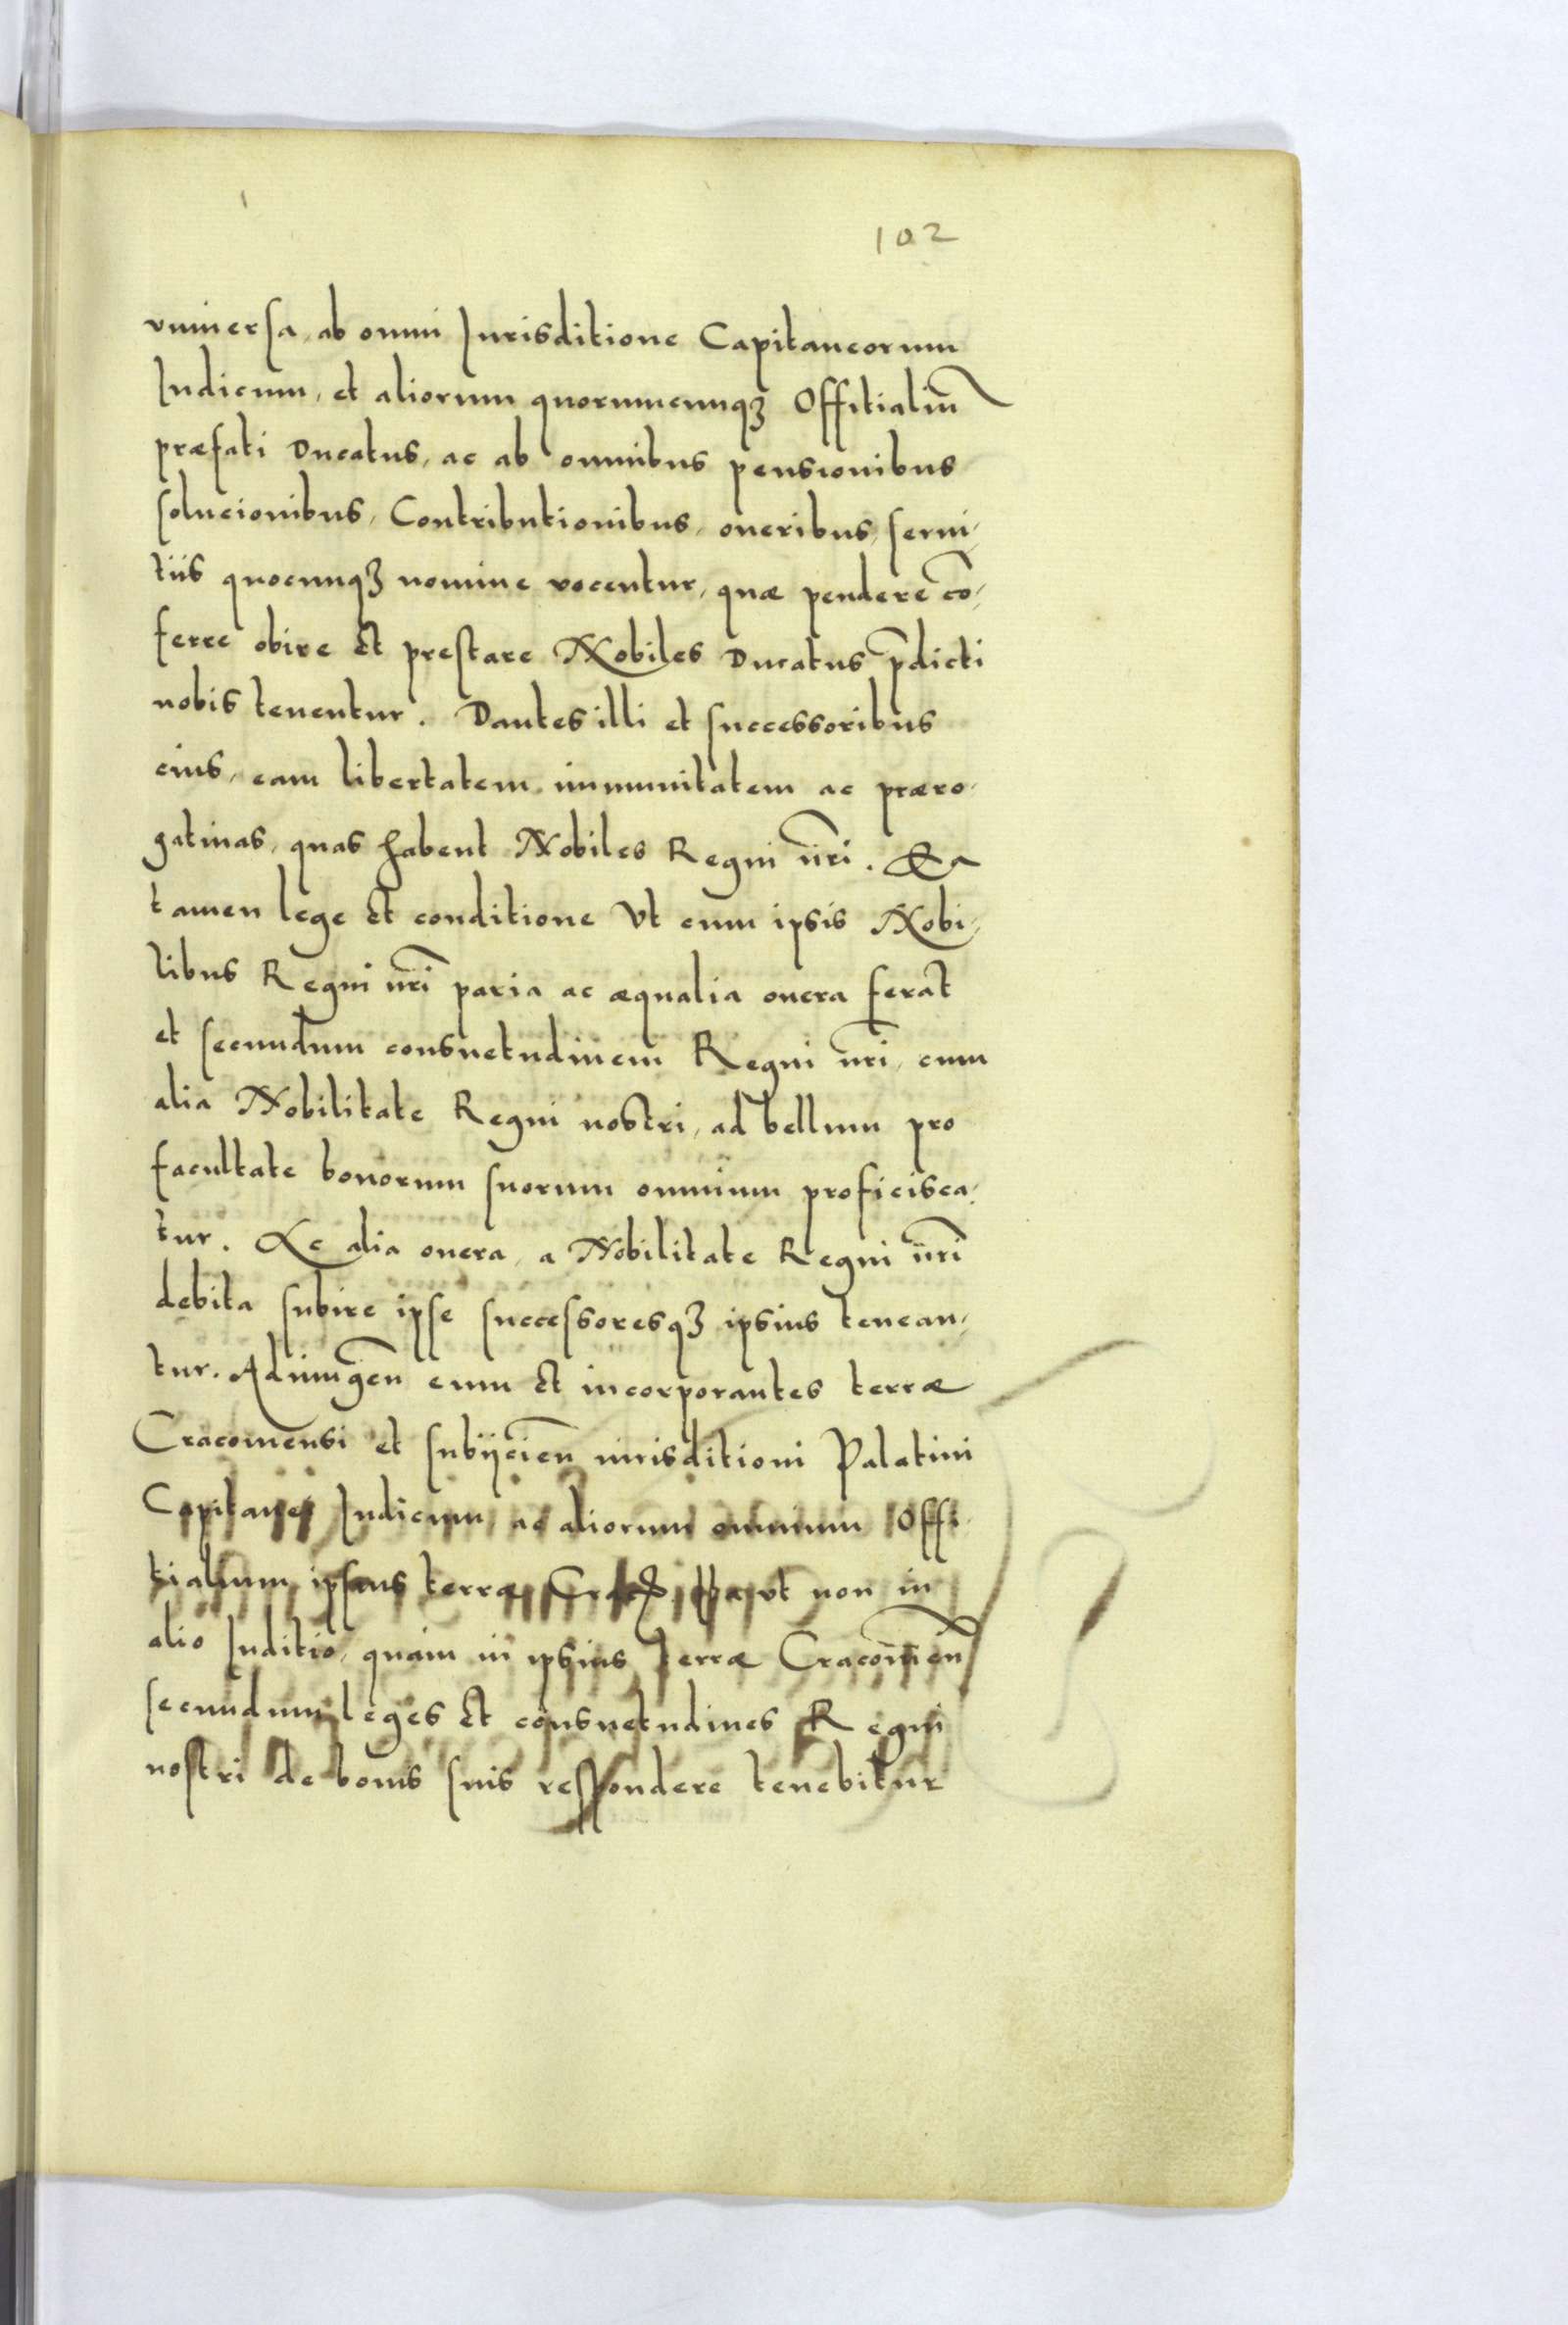 102
vniuersa, ab omni Iurisditione Capitaneorum
Iudicum, et aliorum quorumcunqꝫ Offitialiū
præfati Ducatus, ac ab omnibus pensionibus
solucionibus, Contributionibus, oneribus, serui,
tiis quocunqꝫ nomine vocentur, quæ pendere cō,
ferre obire et prestare Nobiles Ducatus p̄dicti
nobis tenentur. Dantes illi et successoribus
eius, eam libertatem immunitatem ac præro,
gatiuas, quas habent Nobiles Regni nr̄i. Ea
tamen lege et conditione Vt cum ipsis Nobi,
libus Regni nr̄i paria ac æqualia onera ferat
et secundum consuetudinem Regni nr̄i, cum
alia Nobilitate Regni nostri, ad bellum pro
facultate bonorum suorum omnium proficisca,
tur. Ac alia onera, a Nobilitate Regni nr̄i
debita subire ipse successoresqꝫ ipsius tenean,
tur. Adiungeñ eum et incorporantes terræ
Cracouiensi et subijcieñ iurisditioni Palatini
Capitanei Iudicum, ac aliorum omnium Offi,
tialium ipsius terræ ut non in
alio Iuditio, quam in ipsius terræ Cracouieñ
secundum leges et consuetudines Regni
nostri de bonis suis respondere tenebitur